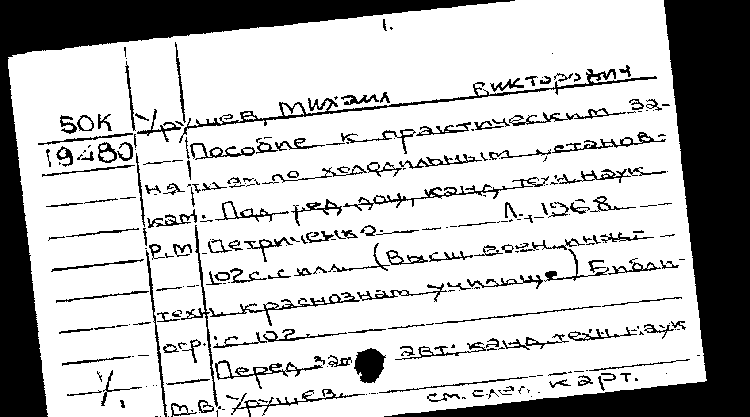 1.
Урушев, Михаил Викторович
50К
19480
Пособие к практическим за-
нятиям по холодильным установ-
кам. Под ред. доц. канд. техн. наук
Р.М. Петриченко. Л., 1968.
102 с. с илл. (Высш. воен. инж.-
техн. краснознам училище) Библи-
огр.: с. 102.
Перед заг. авт: канд. техн. наук
М.В. Урушев. см. след. карт.